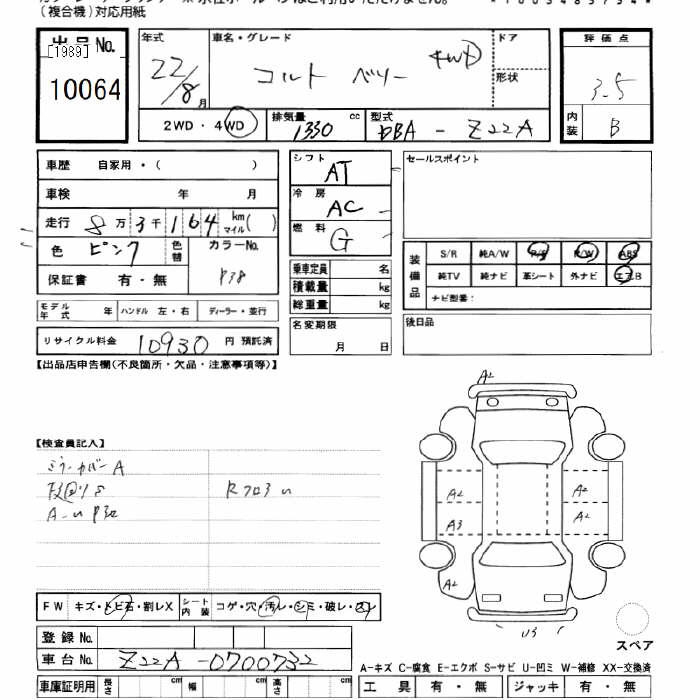 (複合機)対応用紙
出品No.
[1989]
10064
年式 車名・グレード ドア
22/8月 コルト ベリー 4WD 形状
2WD・4WD 排気量 1330 cc 型式 DBA-Z22A
評価点
3.5
内装 B
車歴 自家用・( )
車検 年 月
走行 8万3千164 km マイル( )
色 ピンク 色替 カラーNo. P38
保証書 有・無
モデル年式 年 ハンドル 左・右 ディーラー・並行
リサイクル料金 10930 円 預託済
シフト AT
冷房 AC
燃料 G
乗車定員 名
積載量 kg
総重量 kg
名変期限
月 日
セールスポイント
装備品 S/R 純A/W P/S P/W ABS
純TV 純ナビ 革シート 外ナビ エアB
ナビ型番:
後日品
【出品店申告欄(不良箇所・欠品・注意事項等)】
【検査員記入】
ミラーカバーA
R フロアU
A2
A2
A2
A3
A2
A2
U3
スペア
FW キズ・トビ石・割レX シート内装 コゲ・穴・汚レ・シミ・破レ・スレ
登録No.
車台No. Z22A-0700732
A-キズ C-腐食 E-エクボ S-サビ U-凹ミ W-補修 XX-交換済
車庫証明用 長さ cm 幅 cm 高さ cm
工具 有・無 ジャッキ 有・無